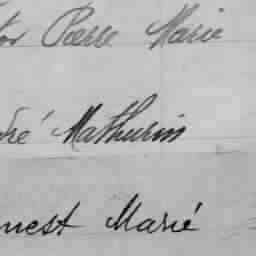 tor Pierre Marie
dré Mathurin
nest Marié